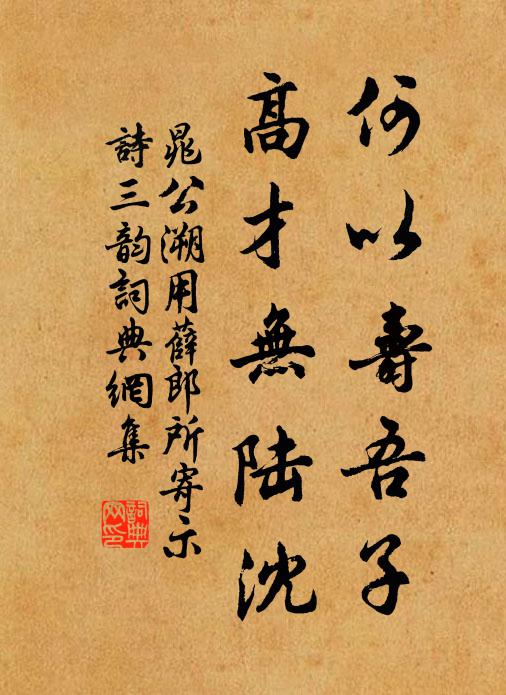 何以壽吾子
高才無陆沈
晁公溯用薛郎所寄示
詩三韵詞典網集
詞典
网印